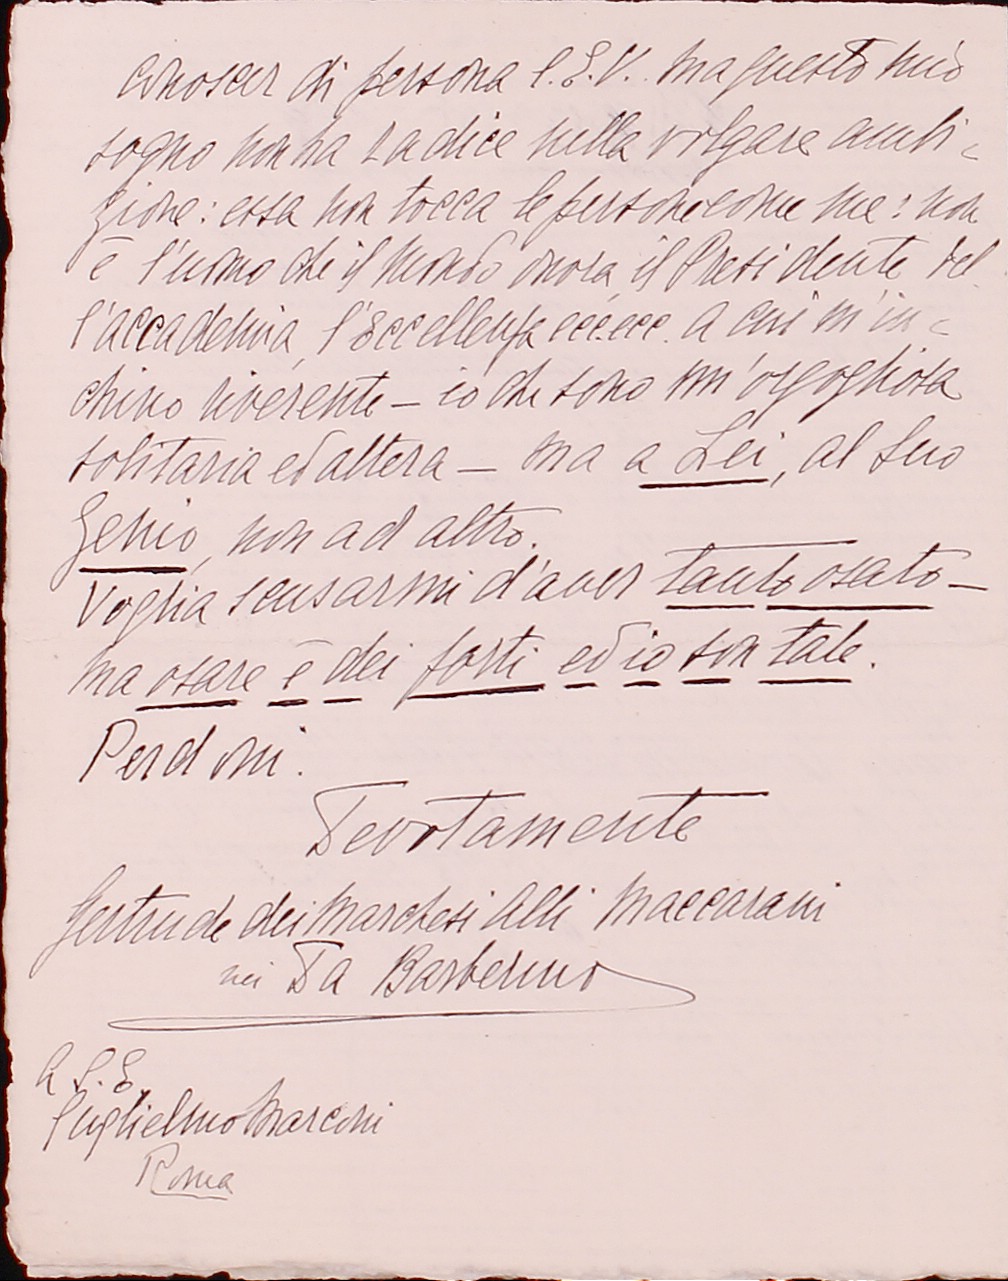 conoscer di persona l'E.V. ma questo mio
sogno non ha radice nella volgare ambi-
zione: essa non tocca le persone come me: non
è l'uomo che il mondo onora, il Presidente del
l'accademia, l'Eccellenza ecc. ecc. a cui m'in-
chino riverente – io che sono un'orgogliosa
solitaria ed altera – ma a Lei, al Suo
Genio, non ad altro.
Voglia scusarmi d'aver tanto osato –
ma osare è dei forti ed io son tale.
Perdoni.
Devotamente
Gertrude dei Marchesi Alli Maccarani
nei Da Barberino
A S. E.
Guglielmo Marconi
Roma